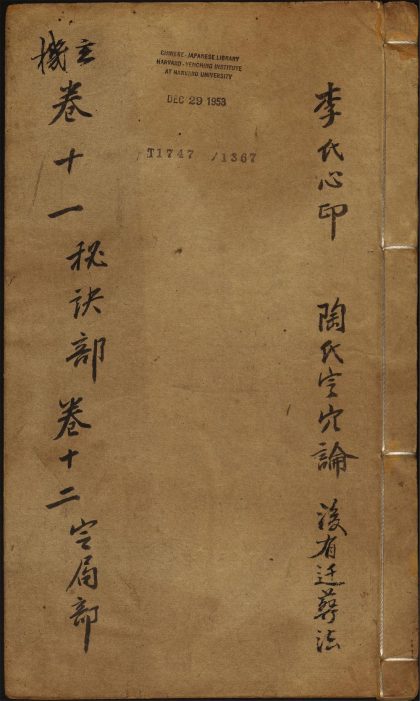 李氏心印　陶氏定穴論　後有迁葬法
CHINESE-JAPANESE LIBRARY
HARVARD-YENCHING INSTITUTE
AT HARVARD UNIVERSITY
DEC 29 1953
T1747 /1367
玄機
卷十一　秘訣部　卷十二　定局部